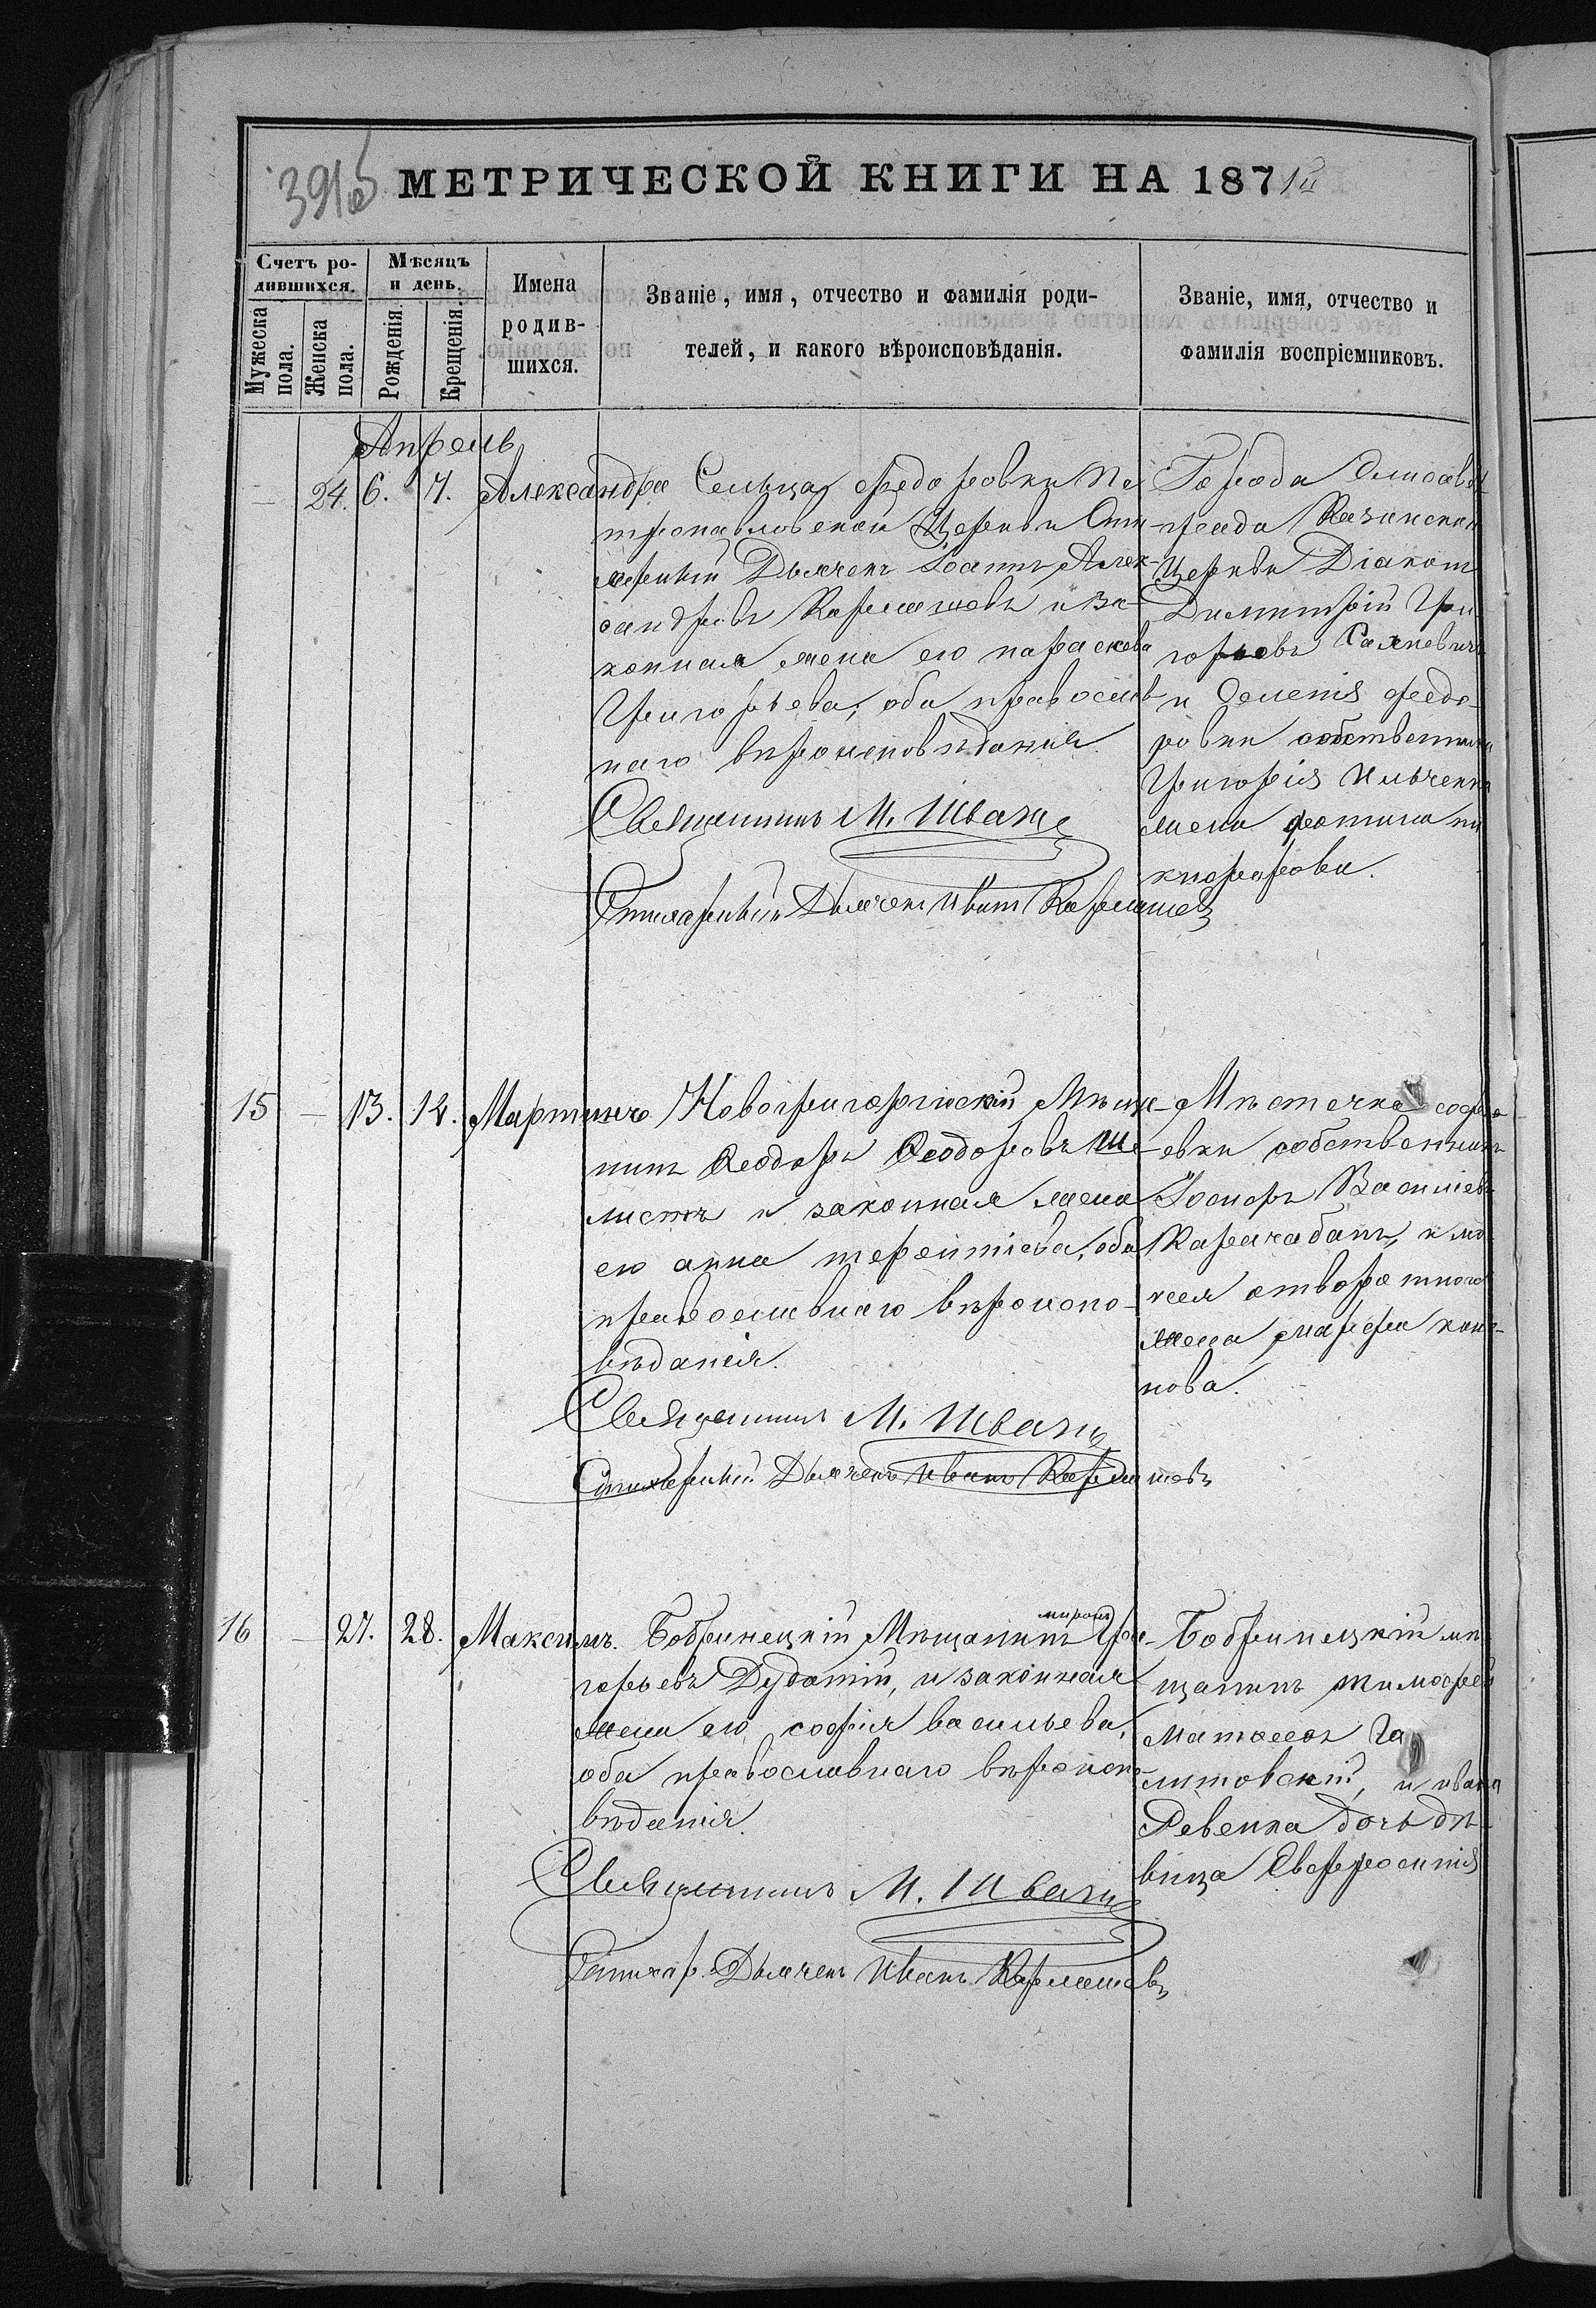 391об
МЕТРИЧЕСКОЙ КНИГИ НА 1871й
Счетъ ро-
дившихся.
Мужеска
пола.
Женска
пола.
Мѣсяцъ
и день.
Рожденія.
Крещенія.
Имена
родив-
шихся.
Званіе, имя, отчество и фамилія роди-
телей, и какого вѣроисповѣданія.
Званіе, имя, отчество и
фамилія воспріемниковъ.
Апрель
24. 6. 7. Александра
Сельца федоровки Пе
тропавловской Церкви Сти
харный Дьячекъ Іоаннъ Алек-
сандровъ Кармашовъ и за-
конная жена его параскева
Григорьева, оба православ
наго вѣроисповѣданія.
Священникъ М. Швацъ
Стихарный Дьячекъ Иванъ Кармашовъ
Города Елисавет
града Казанской
Церкви Діаконъ
Димитрій Гри
горьевъ Сахневичъ
и Селенія федо-
ровки собственника
Григорія Ильченка
жена фотина ни
кифорова.
15 — 13. 14. Мартинъ
Новогригоргіискій Мѣща-
нинъ Ѳеодоръ Ѳеодоровъ Ше
листъ и законная жена
его анна терентіева, оба
православнаго вѣроиспо-
вѣданія.
Священникъ М. Швацъ
Стихарный Дьячекъ Иванъ Кармашовъ
Мѣстечка софі-
евки собственникъ
Іосифъ Василіевъ
Карачабанъ, и мо
жена марфа коно-
нова.
16 — 27. 28. Максимъ.
Бобринецкій Мѣщанинъ миронъ Гри-
горьевъ Дудатій, и законная
жена его софія васильева,
оба православнаго вѣроиспо-
вѣданія.
Священникъ М. Швацъ
Стихар. Дьячекъ Иванъ Кармашовъ
Бобринецкій мѣ
щанинъ тимофей
литовскій, и ивана
Ревенка дочь дѣ-
вица Евфросинія